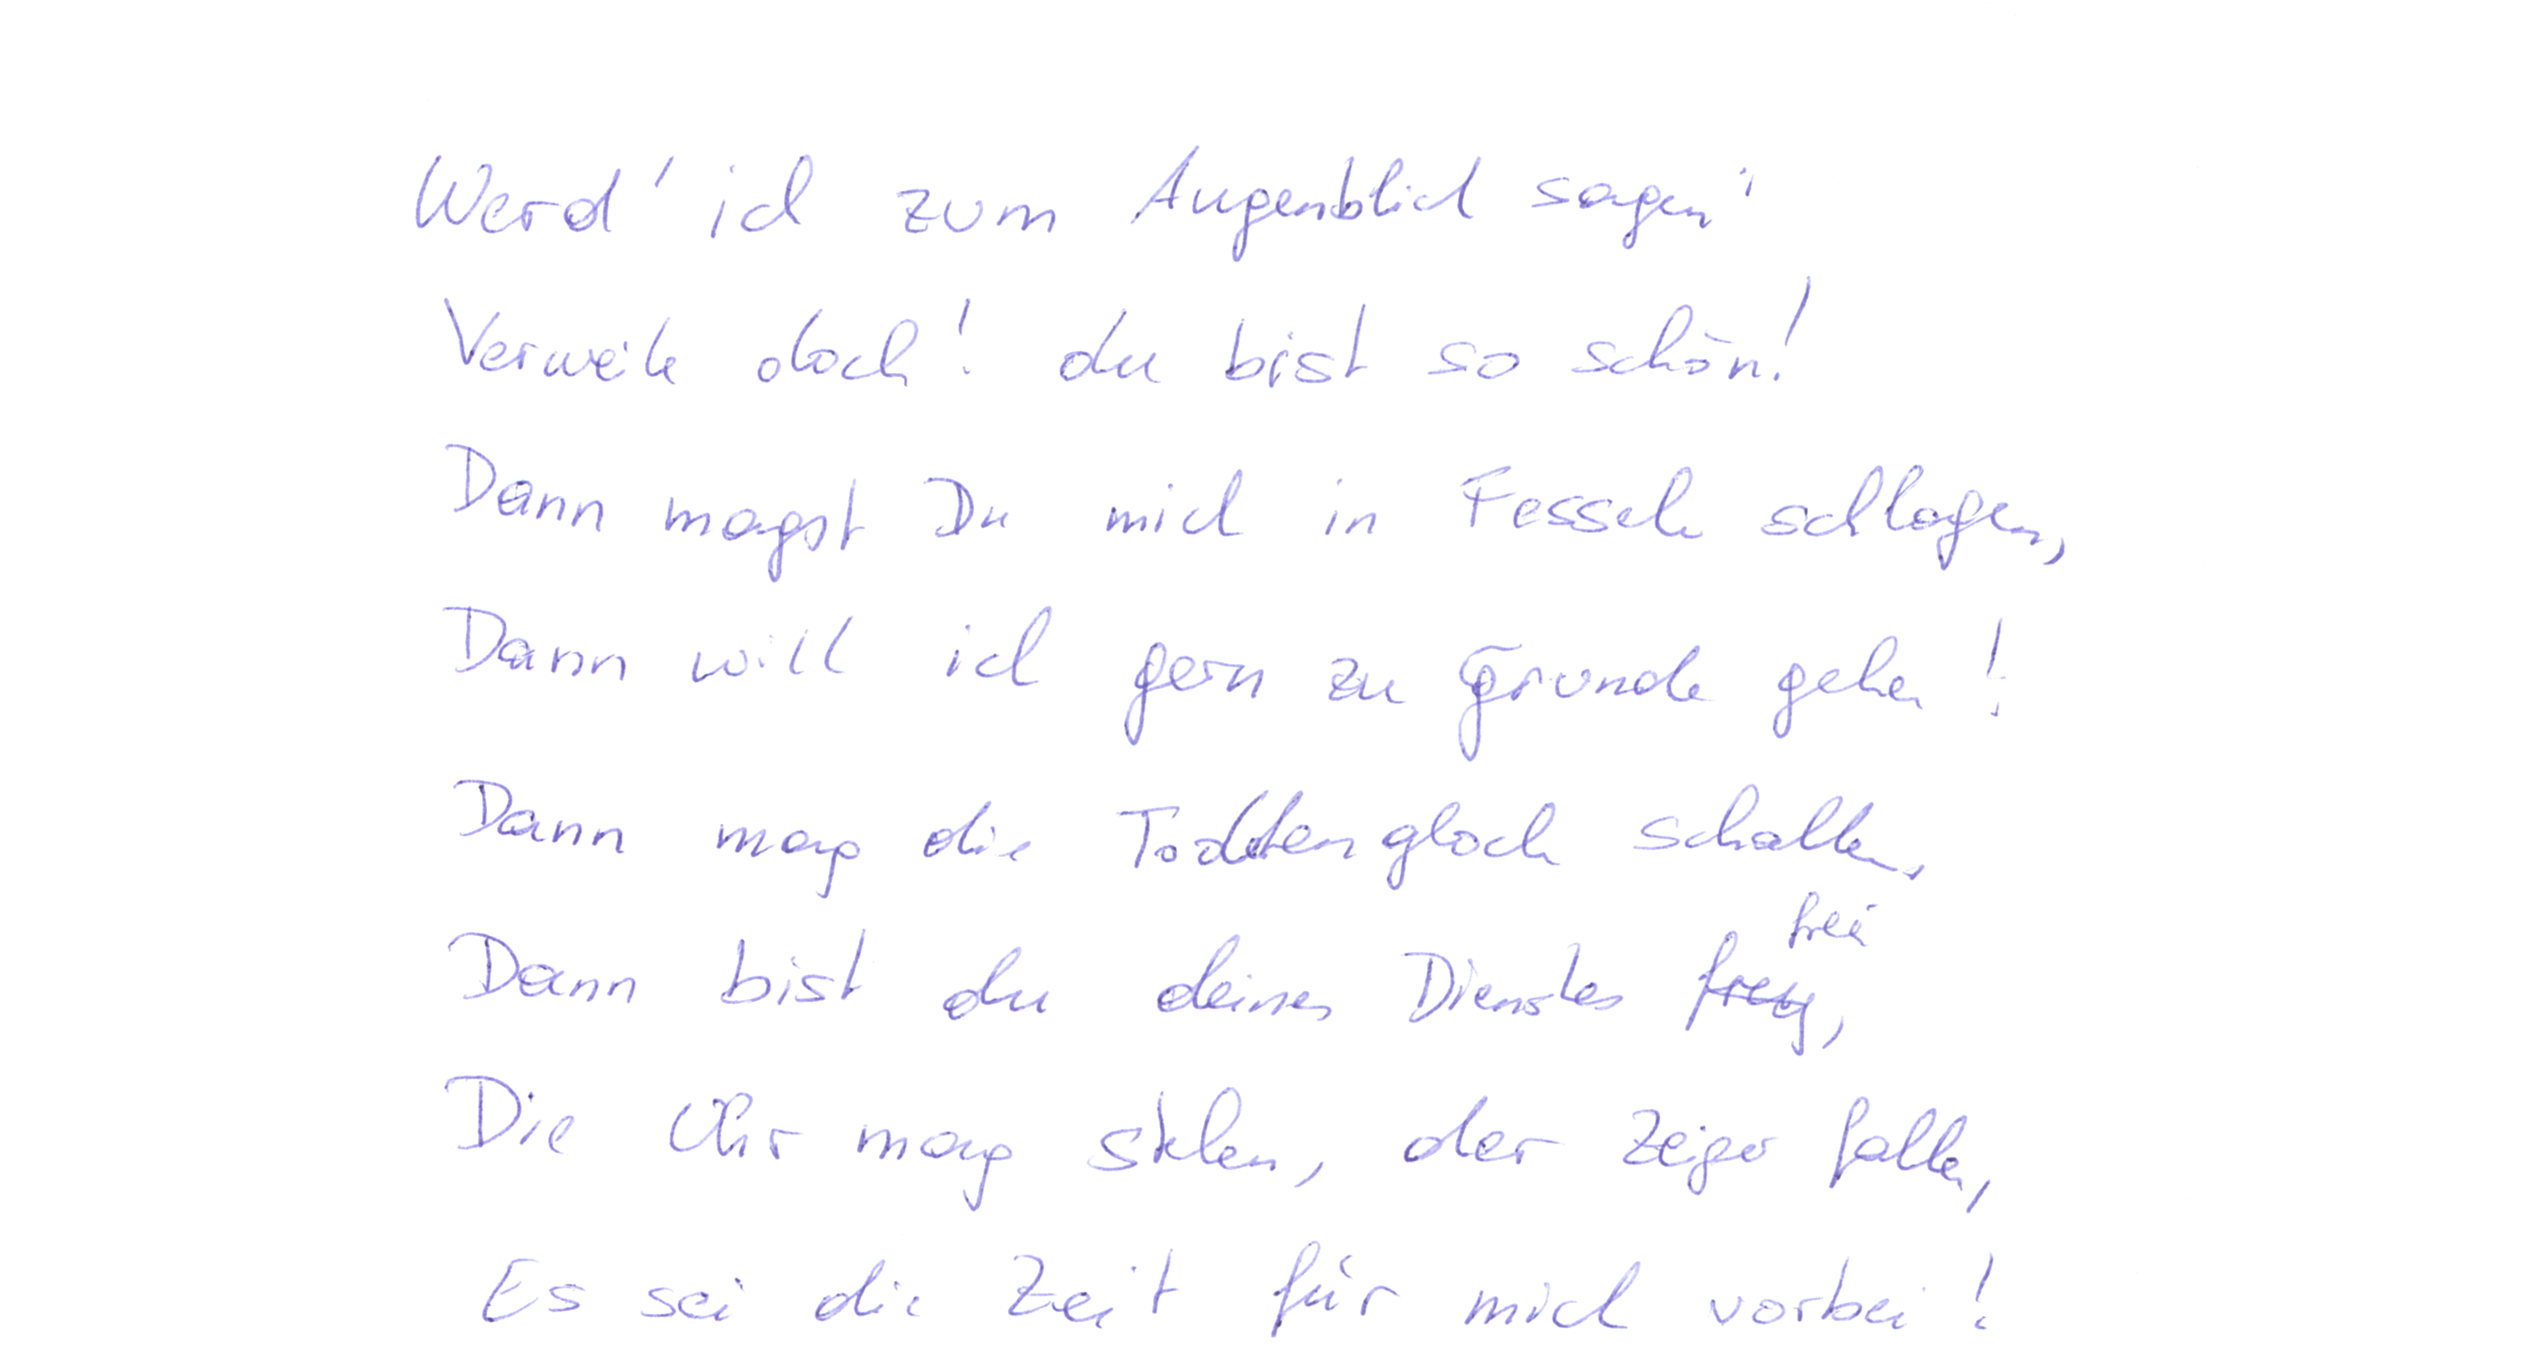 Werd' ich zum Augenblick sagen:
Verweile doch! du bist so schön!
Dann magst Du mich in Fesseln schlagen,
Dann will ich gern zu Grunde gehen!
Dann mag die Todtenglocke schallen,
Dann bist du deines Dienstes frey, frei
Die Uhr mag stehen, der Zeiger fallen,
Es sei die Zeit für mich vorbei!